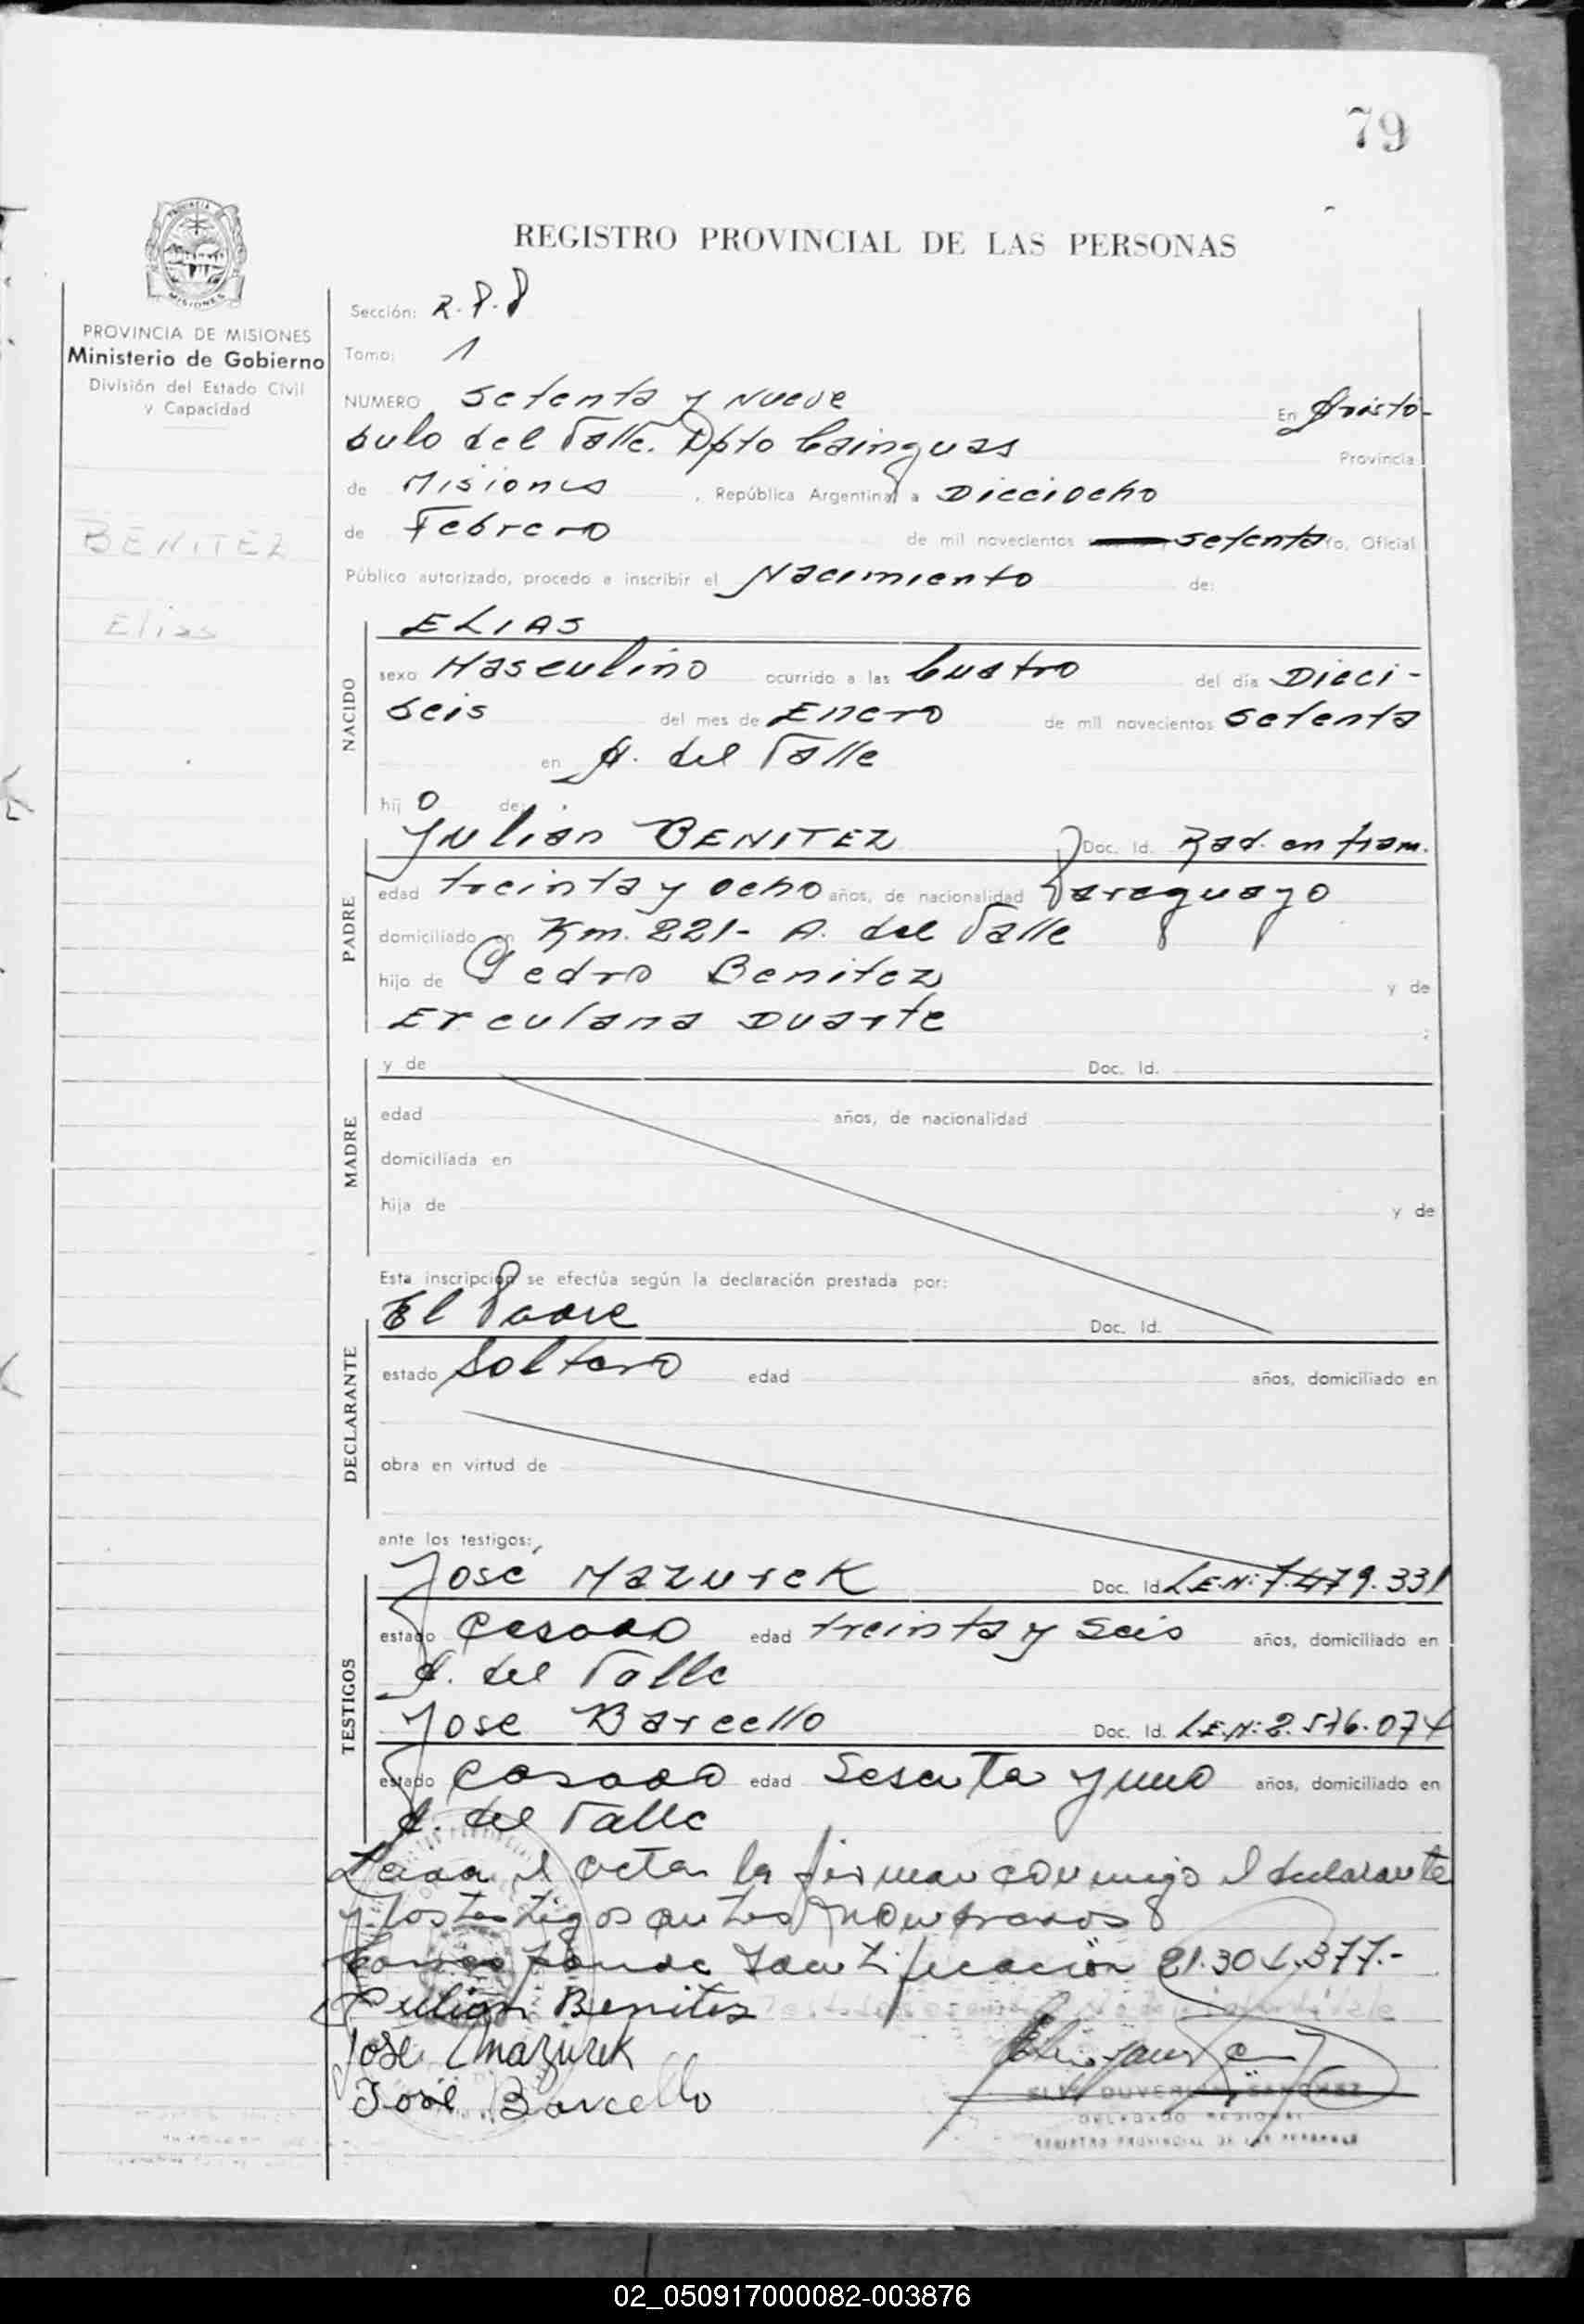 79
REGISTRO PROVINCIAL DE LAS PERSONAS
PROVINCIA DE MISIONES
Ministerio de Gobierno
División del Estado Civil
y Capacidad
BENITEZ
Elias
Sección: R.P.P
Tomo: 1
NUMERO setenta y Nueve En Aristó-
bulo del Valle. Dpto Cainguas Provincia
de Misiones, República Argentina a Dieciocho
de Febrero de mil novecientos setenta Yo, Oficial
Público autorizado, procedo a inscribir el Nacimiento de:
NACIDO
ELIAS
sexo Masculino ocurrido a las Cuatro del día Dieci-
seis del mes de Enero de mil novecientos setenta
en A. del Valle
hij o de:
PADRE
Julian BENITEZ Doc. Id. Rad. en tram.
edad treinta y ocho años, de nacionalidad Paraguayo
domiciliado en Km. 221- A. del Valle
hijo de Pedro Benitez y de
Erculana Duarte
MADRE
y de Doc. Id.
edad años, de nacionalidad
domiciliada en
hija de y de
Esta inscripción se efectúa según la declaración prestada por:
DECLARANTE
El Padre Doc. Id.
estado Soltero edad años, domiciliado en
obra en virtud de
ante los testigos:
TESTIGOS
José Mazurek Doc. Id. L.E.N: 7.479.331
estado Casado edad treinta y Seis años, domiciliado en
A. del Valle
Jose Barcello Doc. Id. L.E.N: 2.576.074
estado Casado edad Sesenta y uno años, domiciliado en
A. del Valle
Leida el acta la firman conmigo el declarante
y los testigos antes nombrados
Corresponde Identificación 21.304.377.-
Julian Benites
José Mazurek
José Barcello
DELEGADO REGIONAL
REGISTRO PROVINCIAL DE LAS PERSONAS
02_050917000082-003876